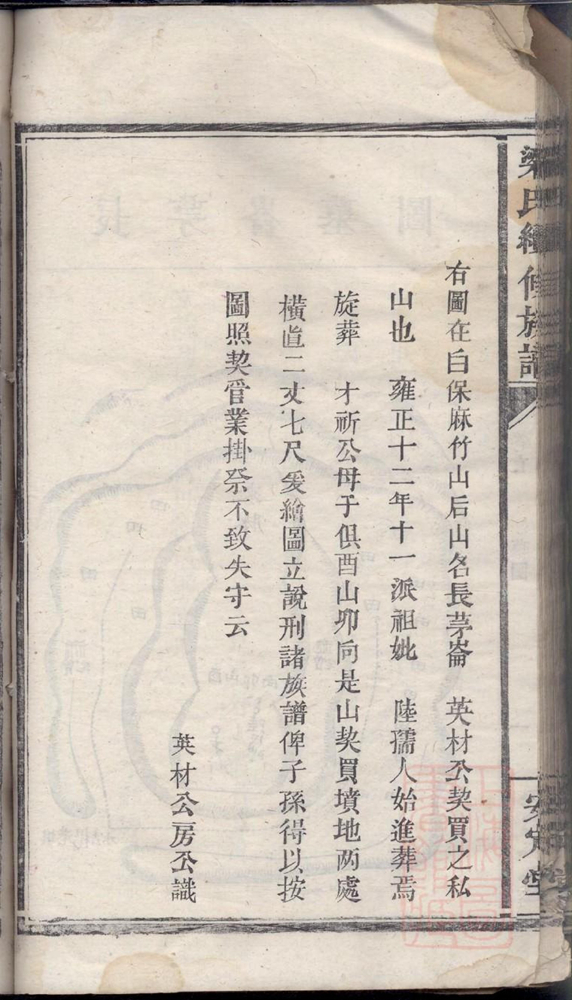 梁氏續修族譜
右圖在白保麻竹山后山名長茅崙　英材公契買之私
山也　雍正十二年十一派祖妣　陸孺人始進葬焉
旋葬　才祈公母子俱酉山卯向是山契買墳地两處
橫直二丈七尺爰繪圖立說刑諸族譜俾子孫得以按
圖照契管業掛祭不致失守云
英材公房仝識
安定堂
長茅崙墓圖